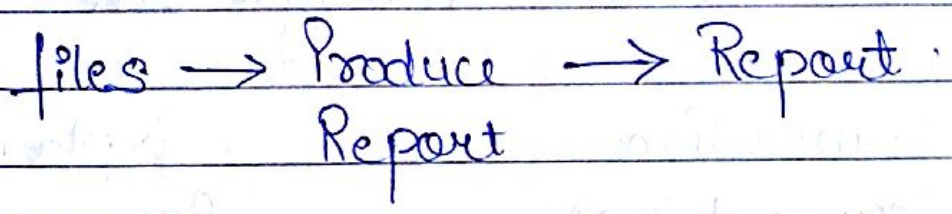 files → Produce → Report.
Report